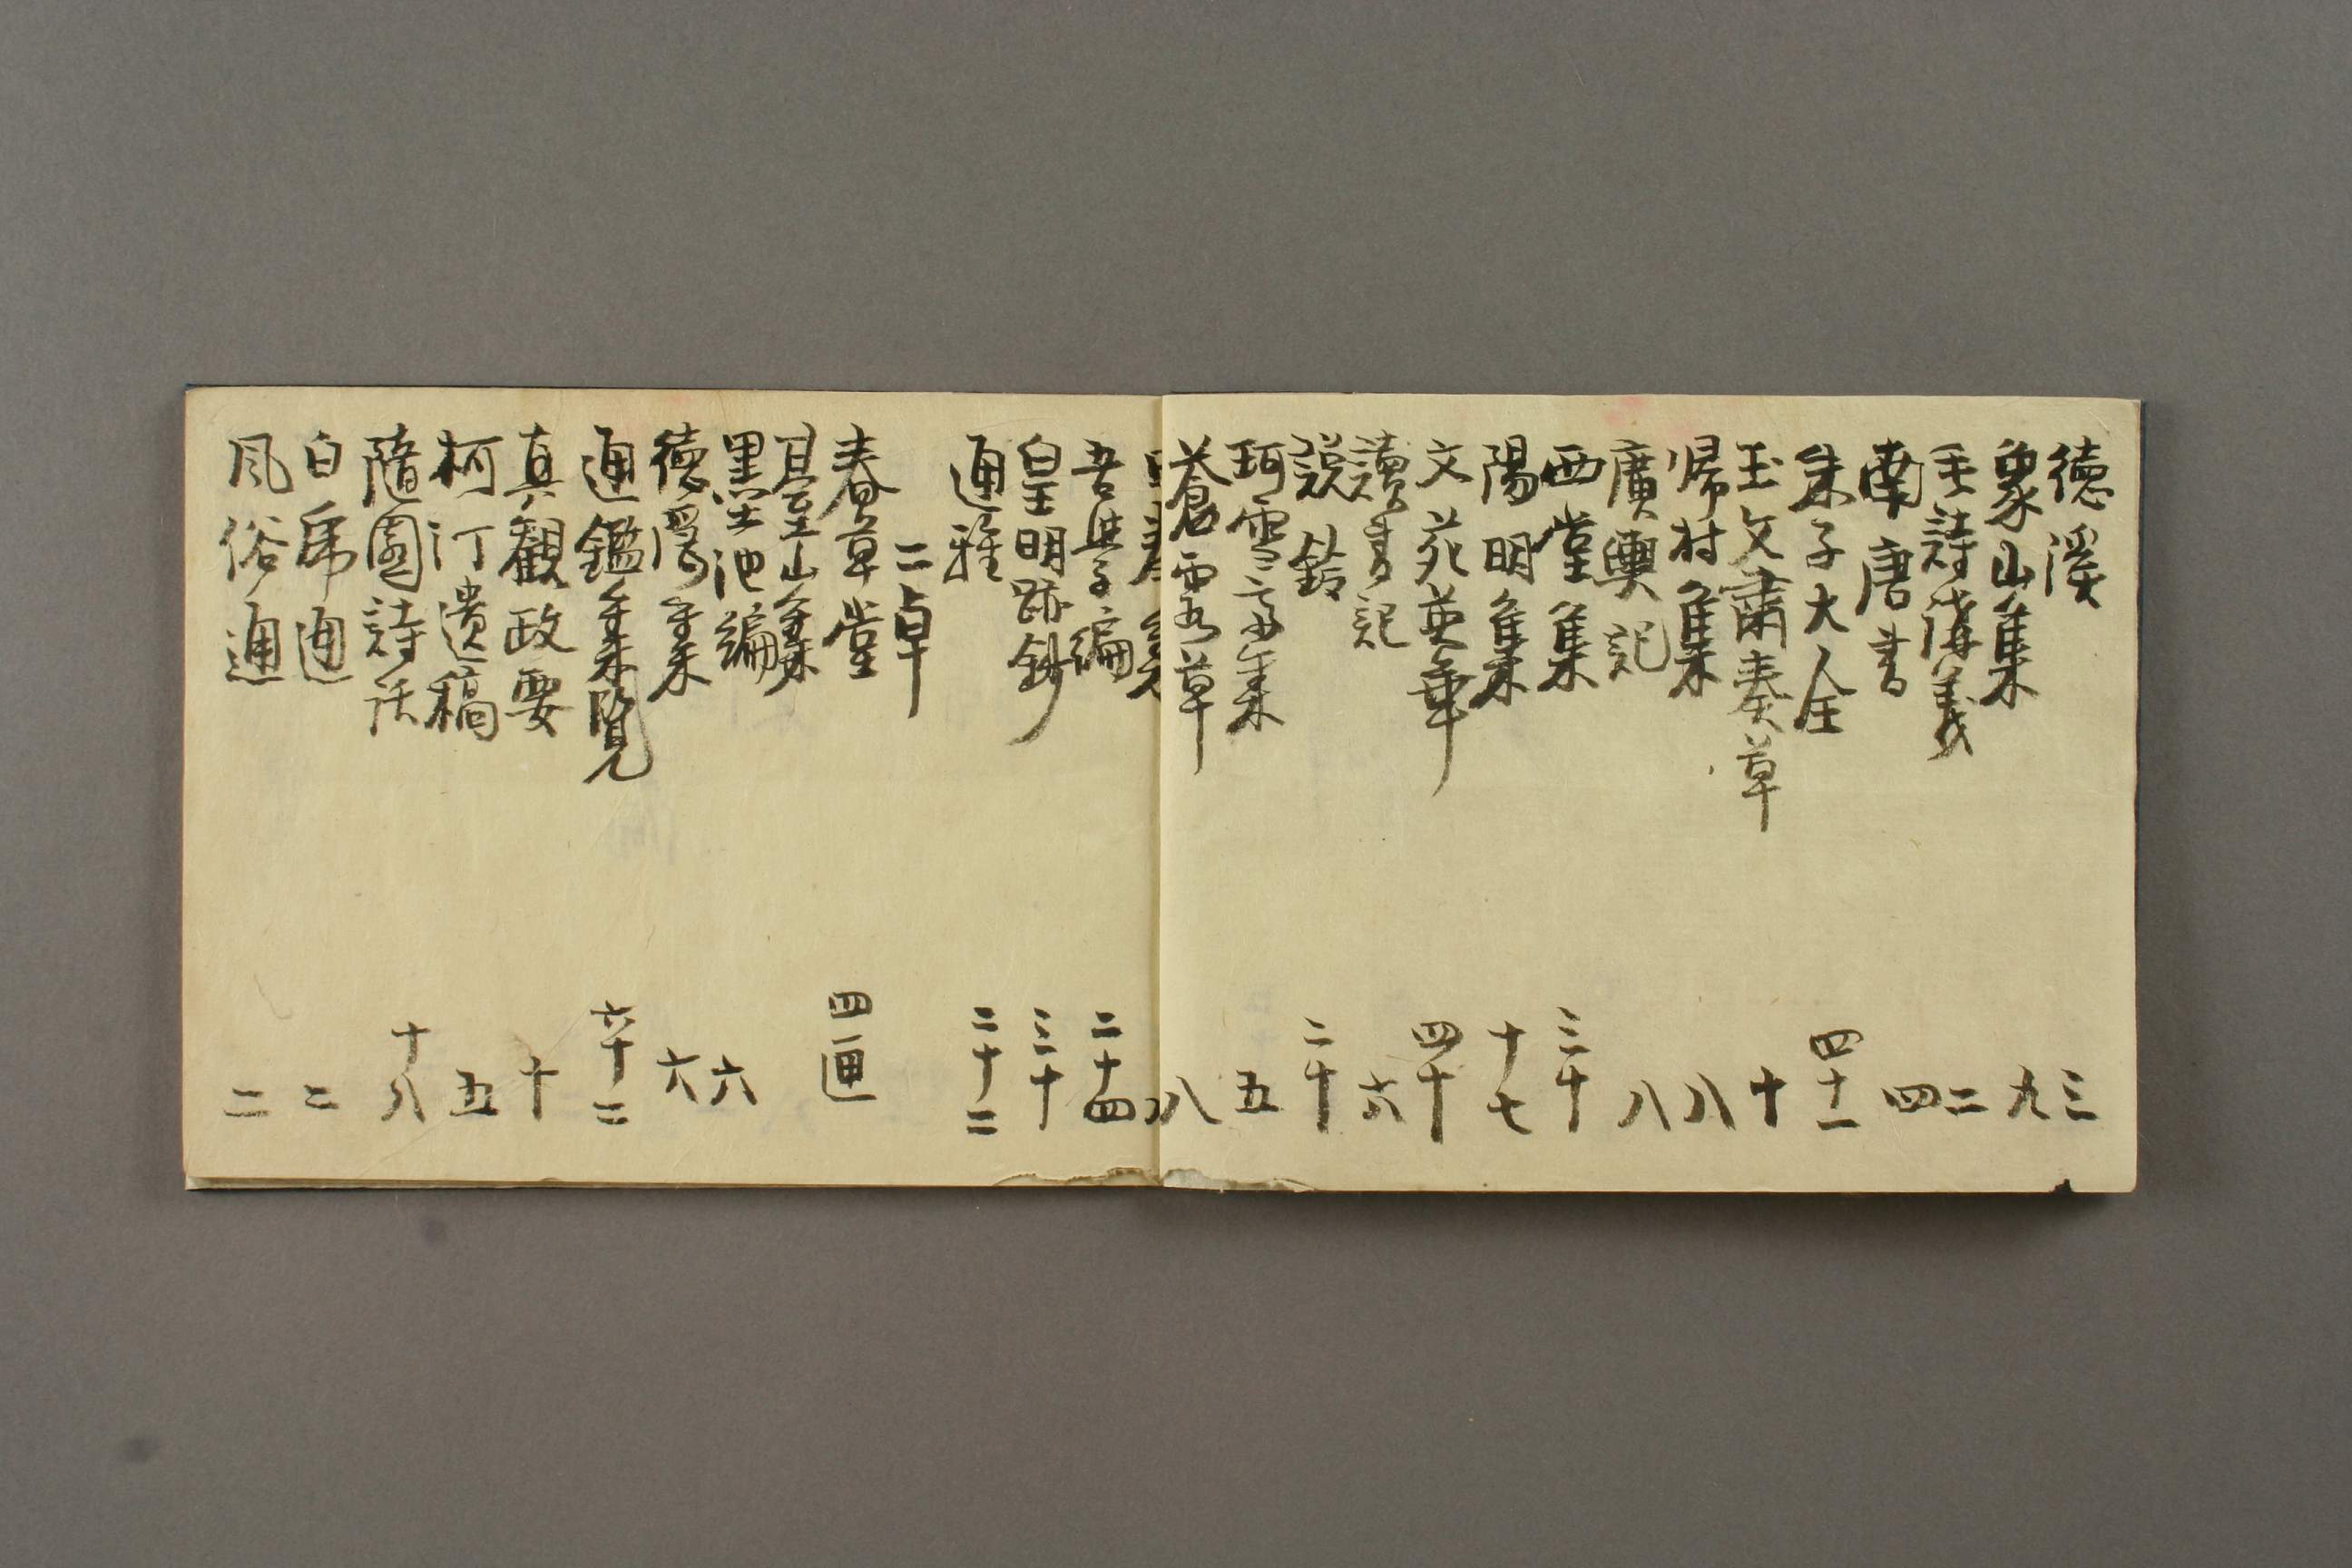 德溪 三
象山集 九
毛詩講義 二
南唐書 四
朱子大全 四十一
王文肅奏草 十
帰村集 八
廣輿記 八
西堂集 三十
陽明集 十七
文苑英華 四十
讀書記 六
説鈴 二十
珂雪斎集 五
蒼霞草 八
吾學編 二十四
皇明疏鈔 三十
通雅 二十二
二卓
春草堂 四匣
臺山集
墨池編 六
徳潤集 六
通鑑集覽 六十二
真觀政要 十
柯汀遺稿 五
隨園詩話 十八
白虎通 二
風俗通 二